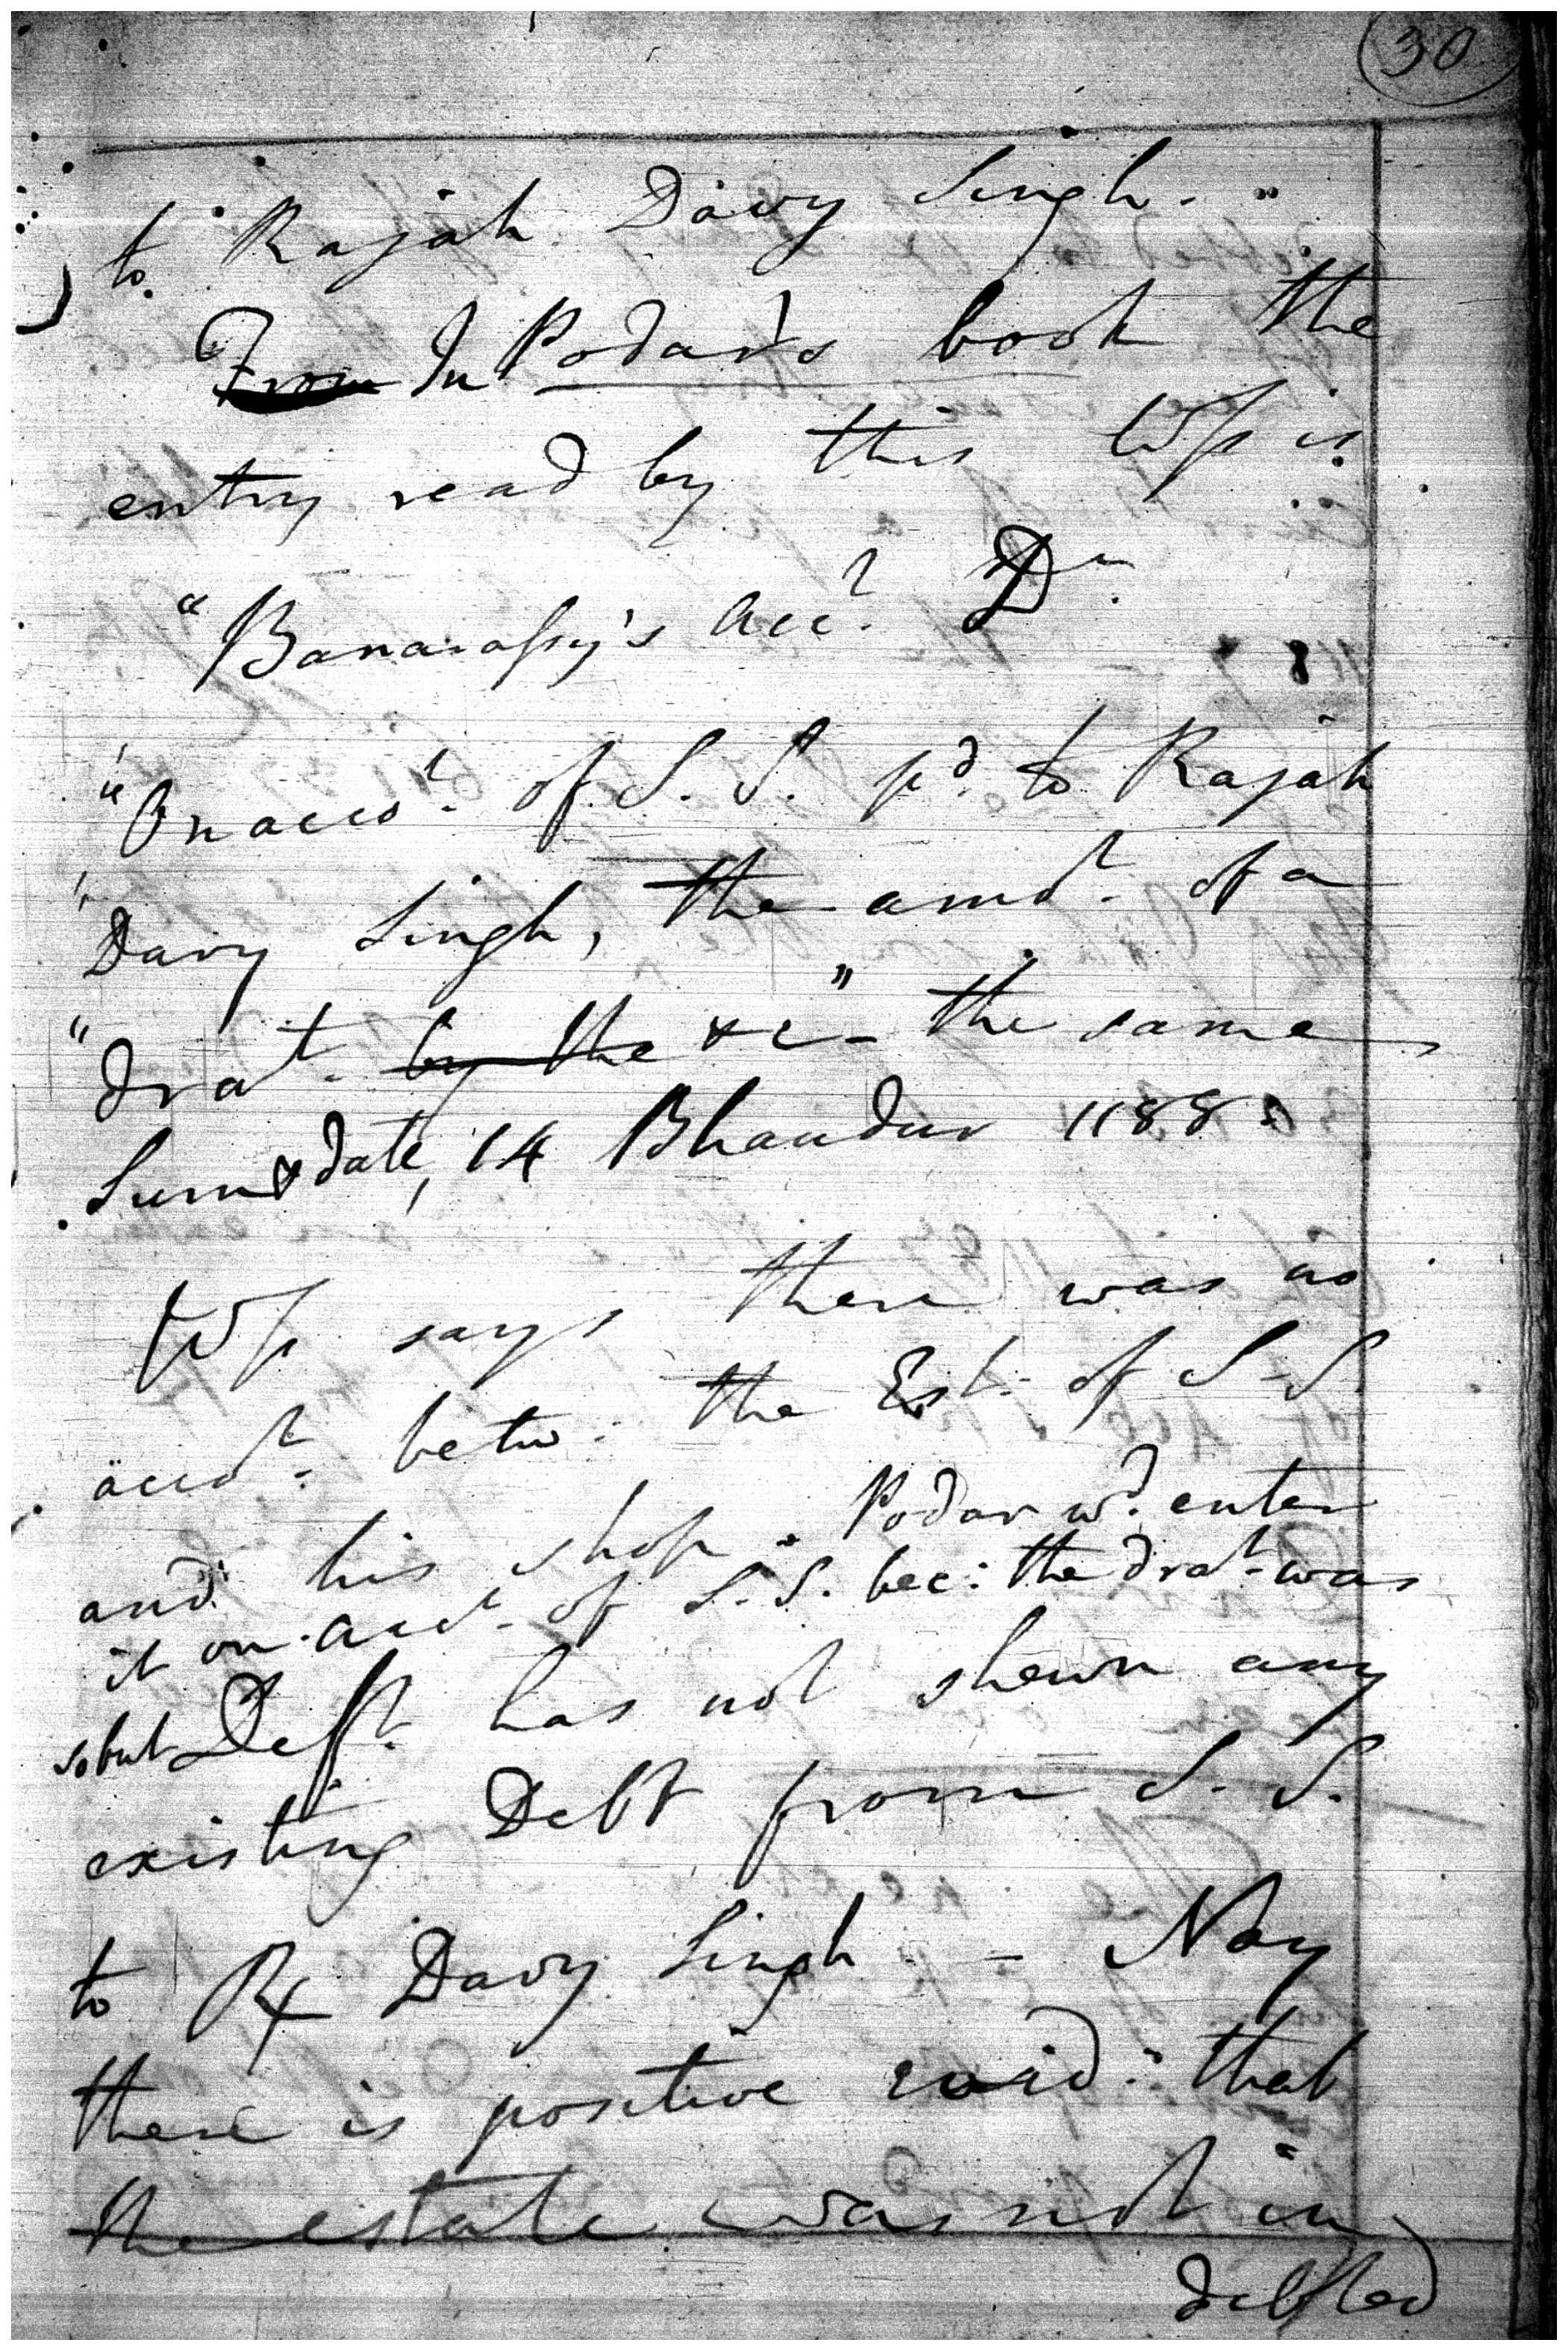 30
to Rajah Davy Singh. "
From In Podar's book the
entry read by this Wss is
"Banarassy's Acct. Dr.
"On accot. of S. S. pd. to Rajah
"Davy Singh, the amot. of a
"drat. by the &c" - the same
Sum & date, 14 Bhaudur 1188.
Wss says there was no
accot. betw. the Est. of S. S.
and his shop. Podar wd. enter
it on acct. of S. S. bec: the drat. was
so but Deft. has not shewn any
existing Debt from S. S.
to R Davy Singh - Nay
there is positive evid: that
the estate was not in
debted